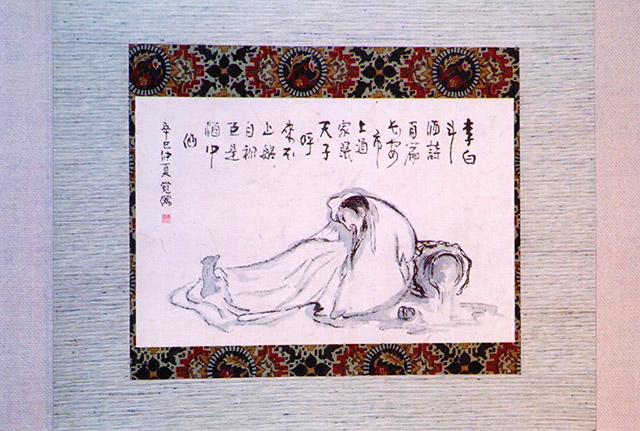 李白
斗
酒詩
百篇
長安
市
上酒
家眠
天子
呼
来不
上船
自称
臣是
酒中
仙
辛巳仲夏